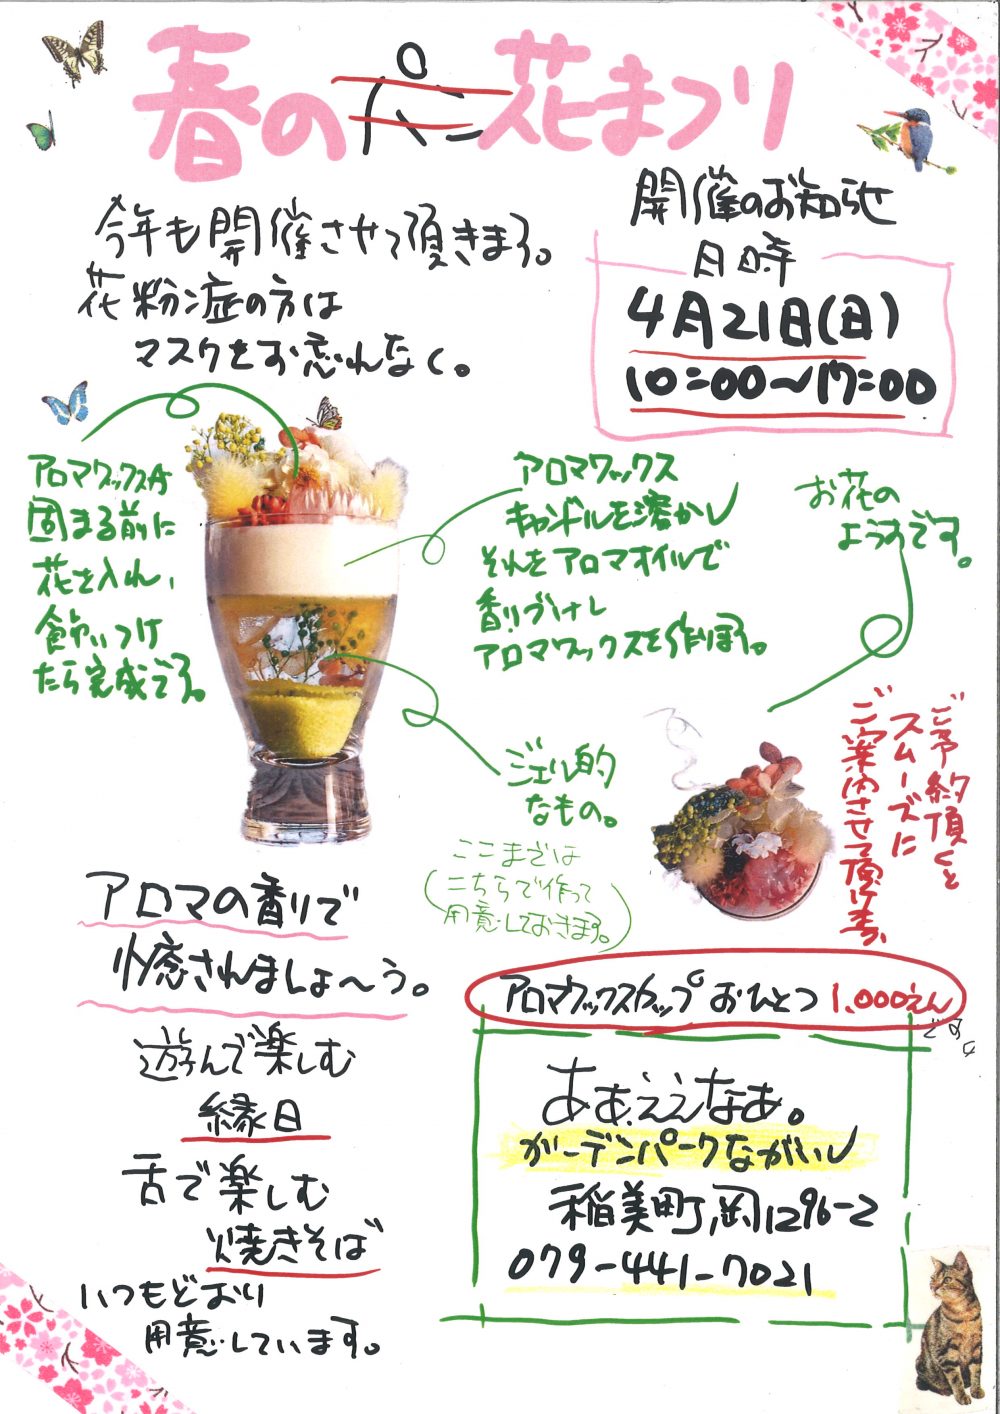 春の花まつり
開催のお知らせ
日時
4月21日(日)
10:00〜17:00
今年も開催させて頂きます。
花粉症の方は
マスクをお忘れなく。
アロマワックスが
固まる前に
花を入れ、
飾りつけ
たら完成です。
アロマワックス
キャンドルを溶かし
それをアロマオイルで
香りづけし
アロマワックスを作ります。
お花の
ようすです。
ジェル的
なもの。
ここまでは
こちらで作って
用意しておきます。
ご予約頂くと
スムーズに
ご案内させて頂けます。
アロマの香りで
癒されましょ〜う。
アロマワックスカップ おひとつ 1,000えん
です
遊んで楽しむ
縁日
舌で楽しむ
焼きそば
いつもどおり
用意しています。
あぁ、ええなぁ。
ガーデンパークながい
稲美町岡1296-2
079-441-7021